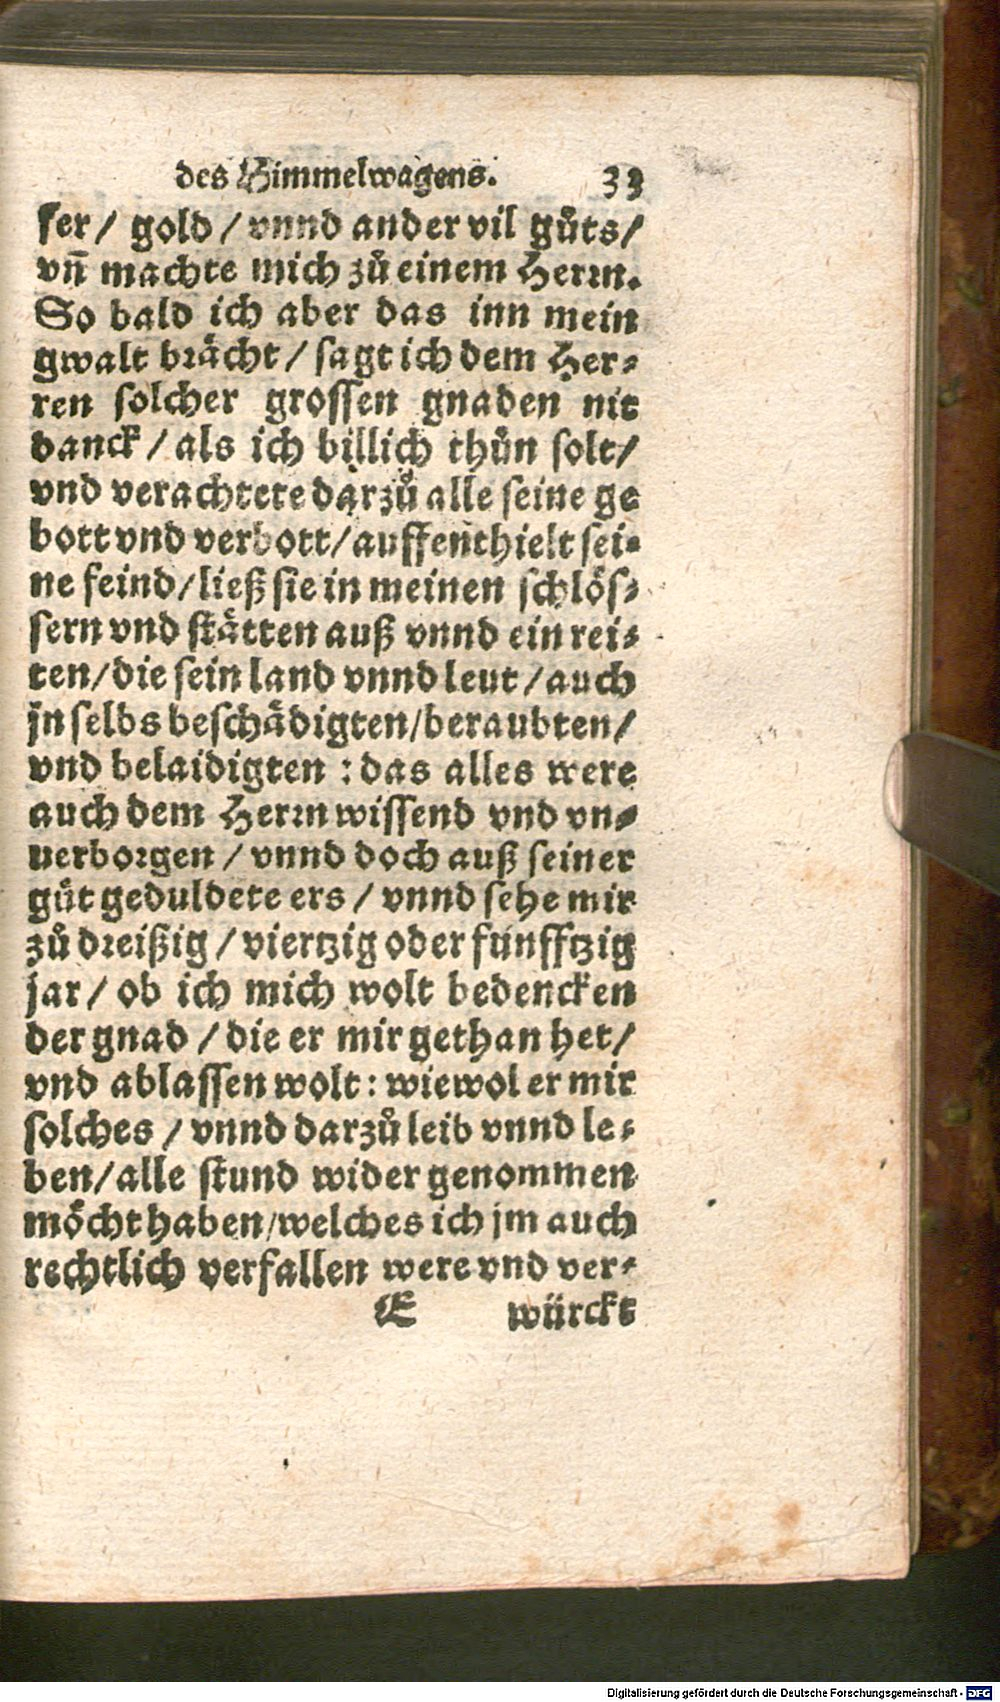 des Himmelwagens. 33
ser/ gold / vnnd ander vil gůts/
vñ machte mich zů einem Herrn.
So bald ich aber das inn mein
gwalt brächt / sagt ich dem Her-
ren solcher grossen gnaden nit
danck / als ich billich thůn solt/
vnd verachtete darzů alle seine ge
bott vnd verbott/ auffenthielt sei-
ne feind/ ließ sie in meinen schlös-
sern vnd stätten auß vnnd ein rei-
ten/ die sein land vnnd leut / auch
jn selbs beschädigten/ beraubten/
vnd belaidigten : das alles were
auch dem Herrn wissend vnd vn-
uerborgen / vnnd doch auß seiner
güt geduldete ers / vnnd sehe mir
zů dreißig / viertzig oder fünfftzig
jar / ob ich mich wolt bedencken
der gnad / die er mir gethan het/
vnd ablassen wolt: wiewol er mir
solches / vnnd darzů leib vnnd le-
ben/ alle stund wider genommen
möcht haben/ welches ich jm auch
rechtlich verfallen were vnd ver-
E würckt
Digitalisierung gefördert durch die Deutsche Forschungsgemeinschaft - DFG